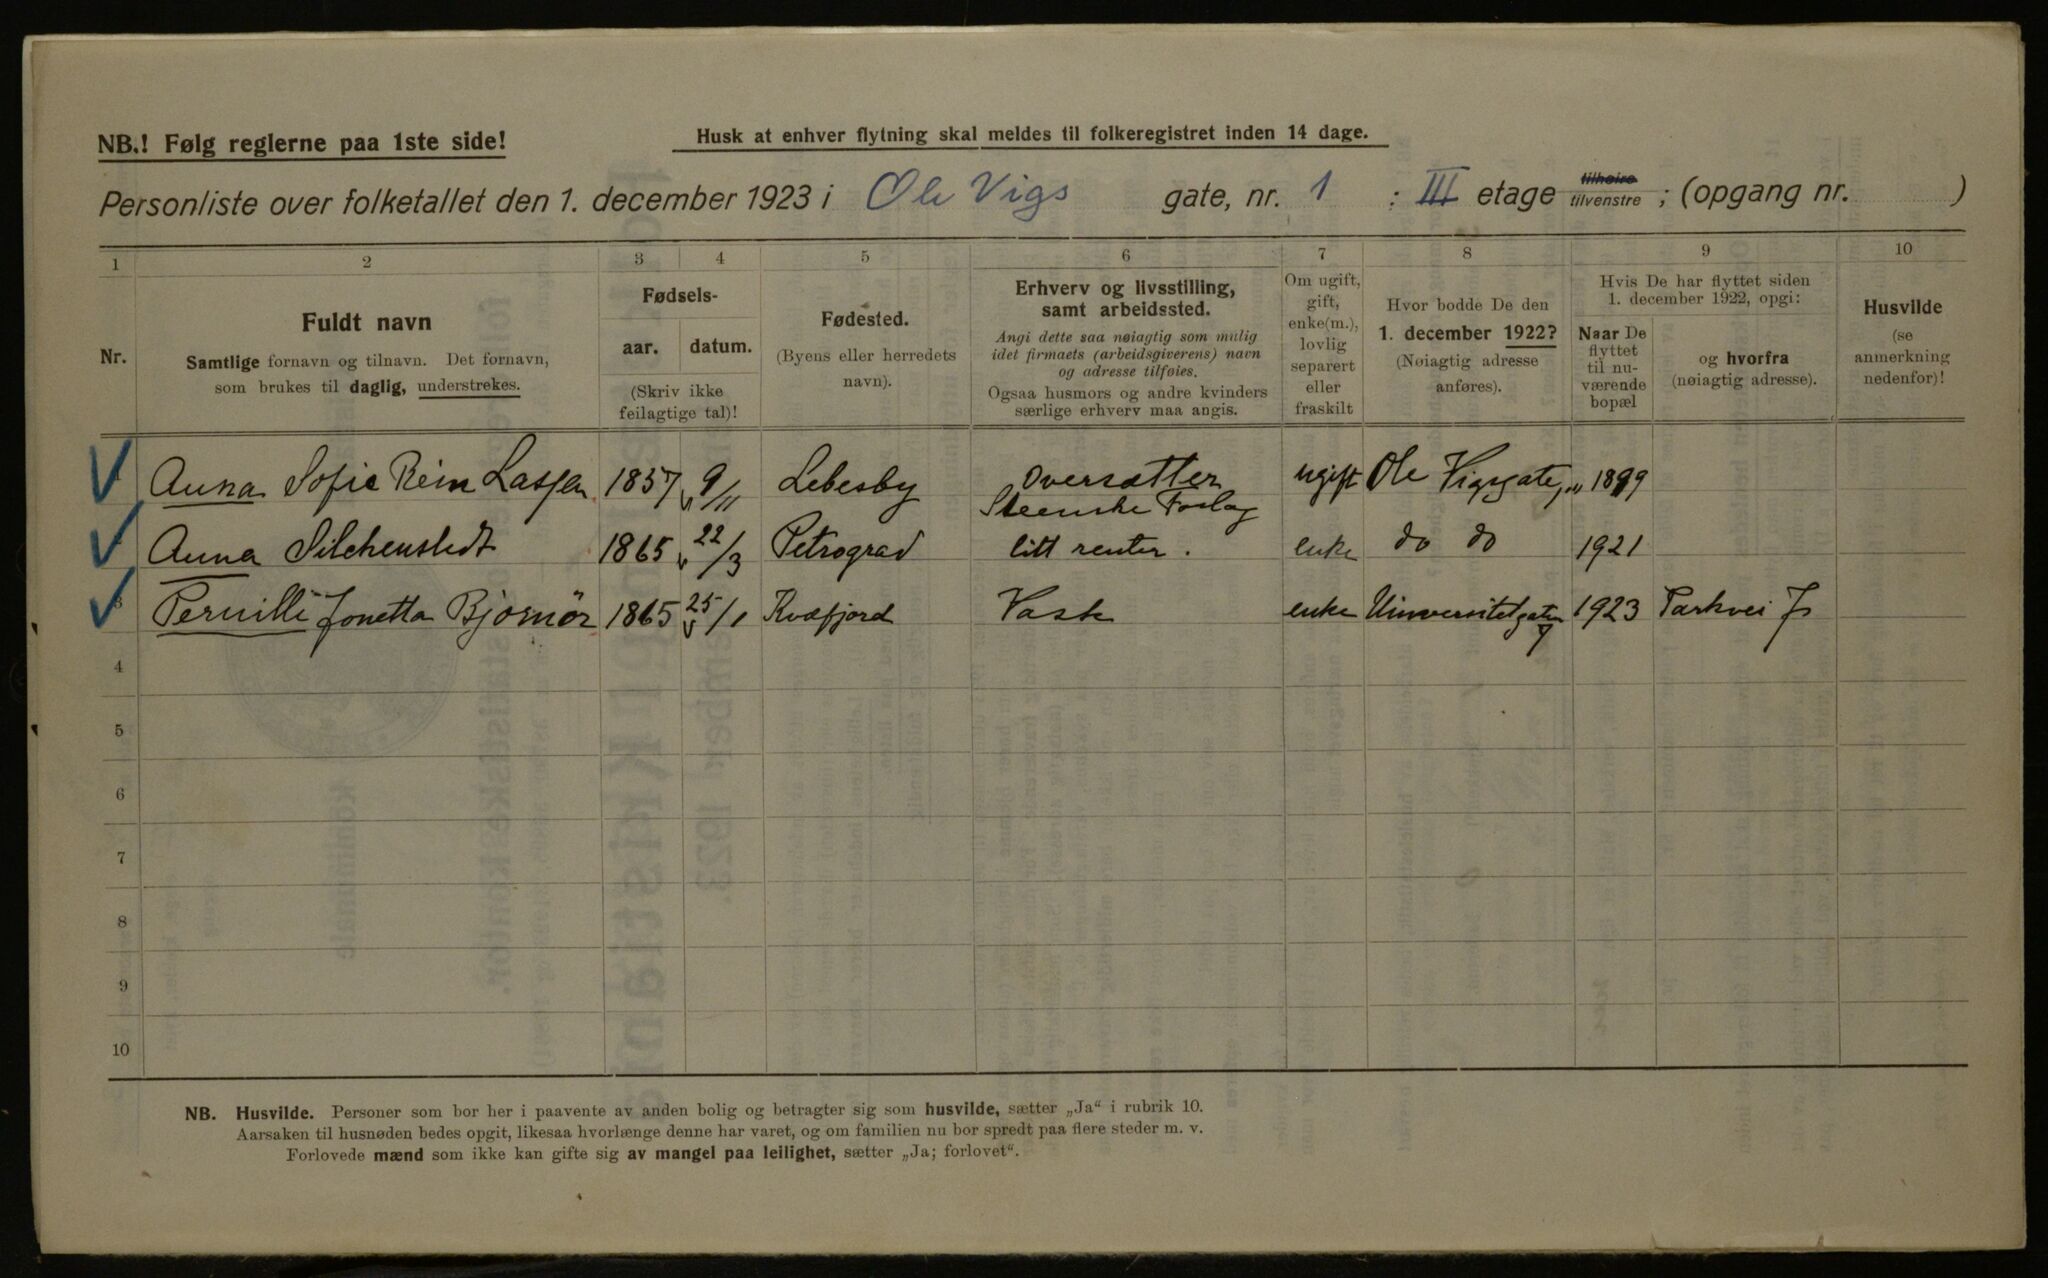 NB.! Følg reglerne paa 1ste side!
Husk at enhver flytning skal meldes til folkeregistret inden 14 dage.
Personliste over folketallet den 1. december 1923 i Ole Vigs gate, nr. 1 : III etage tilhøire tilvenstre ; (opgang nr. )
1 2 3 4 5 6 7 8 9 10
Nr.
Fuldt navn
Samtlige fornavn og tilnavn. Det fornavn,
som brukes til daglig, understrekes.
Fødsels-
aar. datum.
(Skriv ikke
feilagtige tal)!
Fødested.
(Byens eller herredets
navn).
Erhverv og livsstilling,
samt arbeidssted.
Angi dette saa nøiagtig som mulig
idet firmaets (arbeidsgiverens) navn
og adresse tilføies.
Ogsaa husmors og andre kvinders
særlige erhverv maa angis.
Om ugift,
gift,
enke(m.),
lovlig
separert
eller
fraskilt
Hvor bodde De den
1. december 1922?
(Nøiagtig adresse
anføres).
Hvis De har flyttet siden
1. december 1922, opgi:
Naar De
flyttet
til nu-
værende
bopæl
og hvorfra
(nøiagtig adresse).
Husvilde
(se
anmerkning
nedenfor)!
Anna Sofie Rein Lassen 1857 9/11 Lebesby Oversætter ugift Ole Vigsgate 1899
Steenske Forlag
Anna Silchenstedt 1865 22/3 Petrograd litt renter. enke do do 1921
3 Pernille Jonetta Bjornör 1865 25/1 Kvæfjord Vask enke Universitetgaten 7 1923 Parkvei
4
5
6
7
8
9
10
NB. Husvilde. Personer som bor her i paavente av anden bolig og betragter sig som husvilde, sætter „Ja“ i rubrik 10.
Aarsaken til husnøden bedes opgit, likesaa hvorlænge denne har varet, og om familien nu bor spredt paa flere steder m. v.
Forlovede mænd som ikke kan gifte sig av mangel paa leilighet, sætter „Ja; forlovet“.